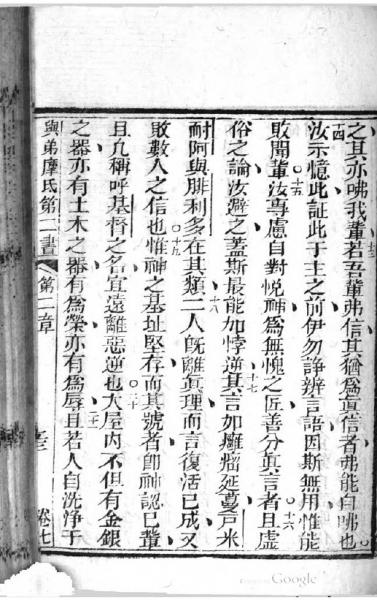 之其亦咈我輩若吾輩弗信其猶爲眞信者弗能自咈也
十四
汝示憶此証此于主之前伊勿諍辨言語因斯無用惟能
敗聞輩汝專慮自對悅神爲無愧之匠善分眞言者且虛
十五
十六
俗之論汝避之蓋斯最能加悖逆其言如癰瘤延蔓戸米
十七
耐阿與腓利多在其類二人旣離眞理而言復活已成又
十八
敗數人之信也惟神之基址堅存而其號者卽神認已輩
十九
且凡稱呼基督之名宜遠離惡逆也大屋内不但有金銀
二十
之器亦有土木之器有爲榮亦有爲辱且若人自洗淨于
二一
與弟摩氏第二書 第二章
卷七
Google